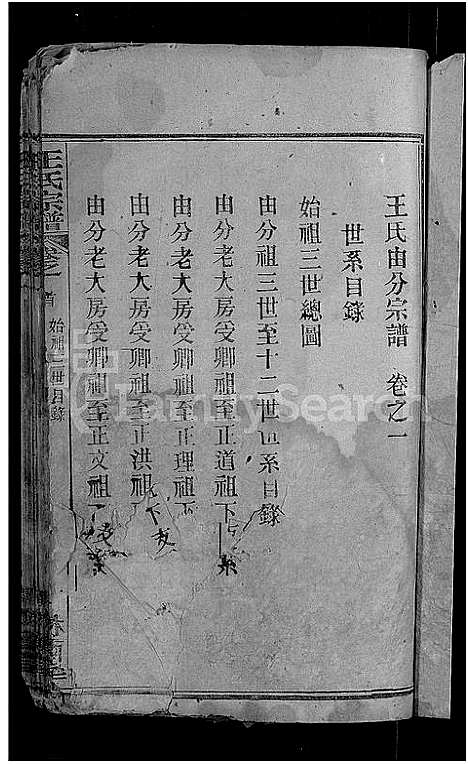 王氏由分宗譜 卷之一
世系目錄
始祖三世總圖
由分祖三世至十二世世系目錄
由分老大房受卿祖至正道祖下 系
由分老大房受卿祖至正理祖下
由分老大房受卿祖至正洪祖下支
由分老大房受卿祖至正文祖下支系
王氏宗譜 卷之一
首 始祖三世目錄
FamilySearch